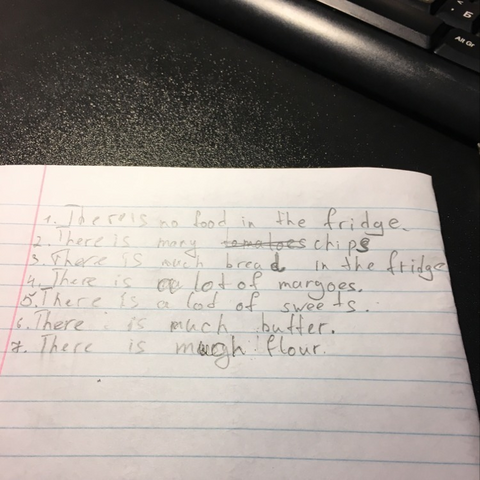 Б
Alt Gr
1. There is no food in the fridge.
2. There is many tomatoes chips
3. There is much bread in the fridge
4. There is a lot of margoes.
5. There is a lod of sweets.
6. There is much butter.
7. There is mugh flour.